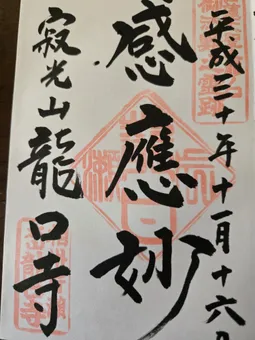 平成三十年十一月十六日
感應妙
寂光山龍口寺